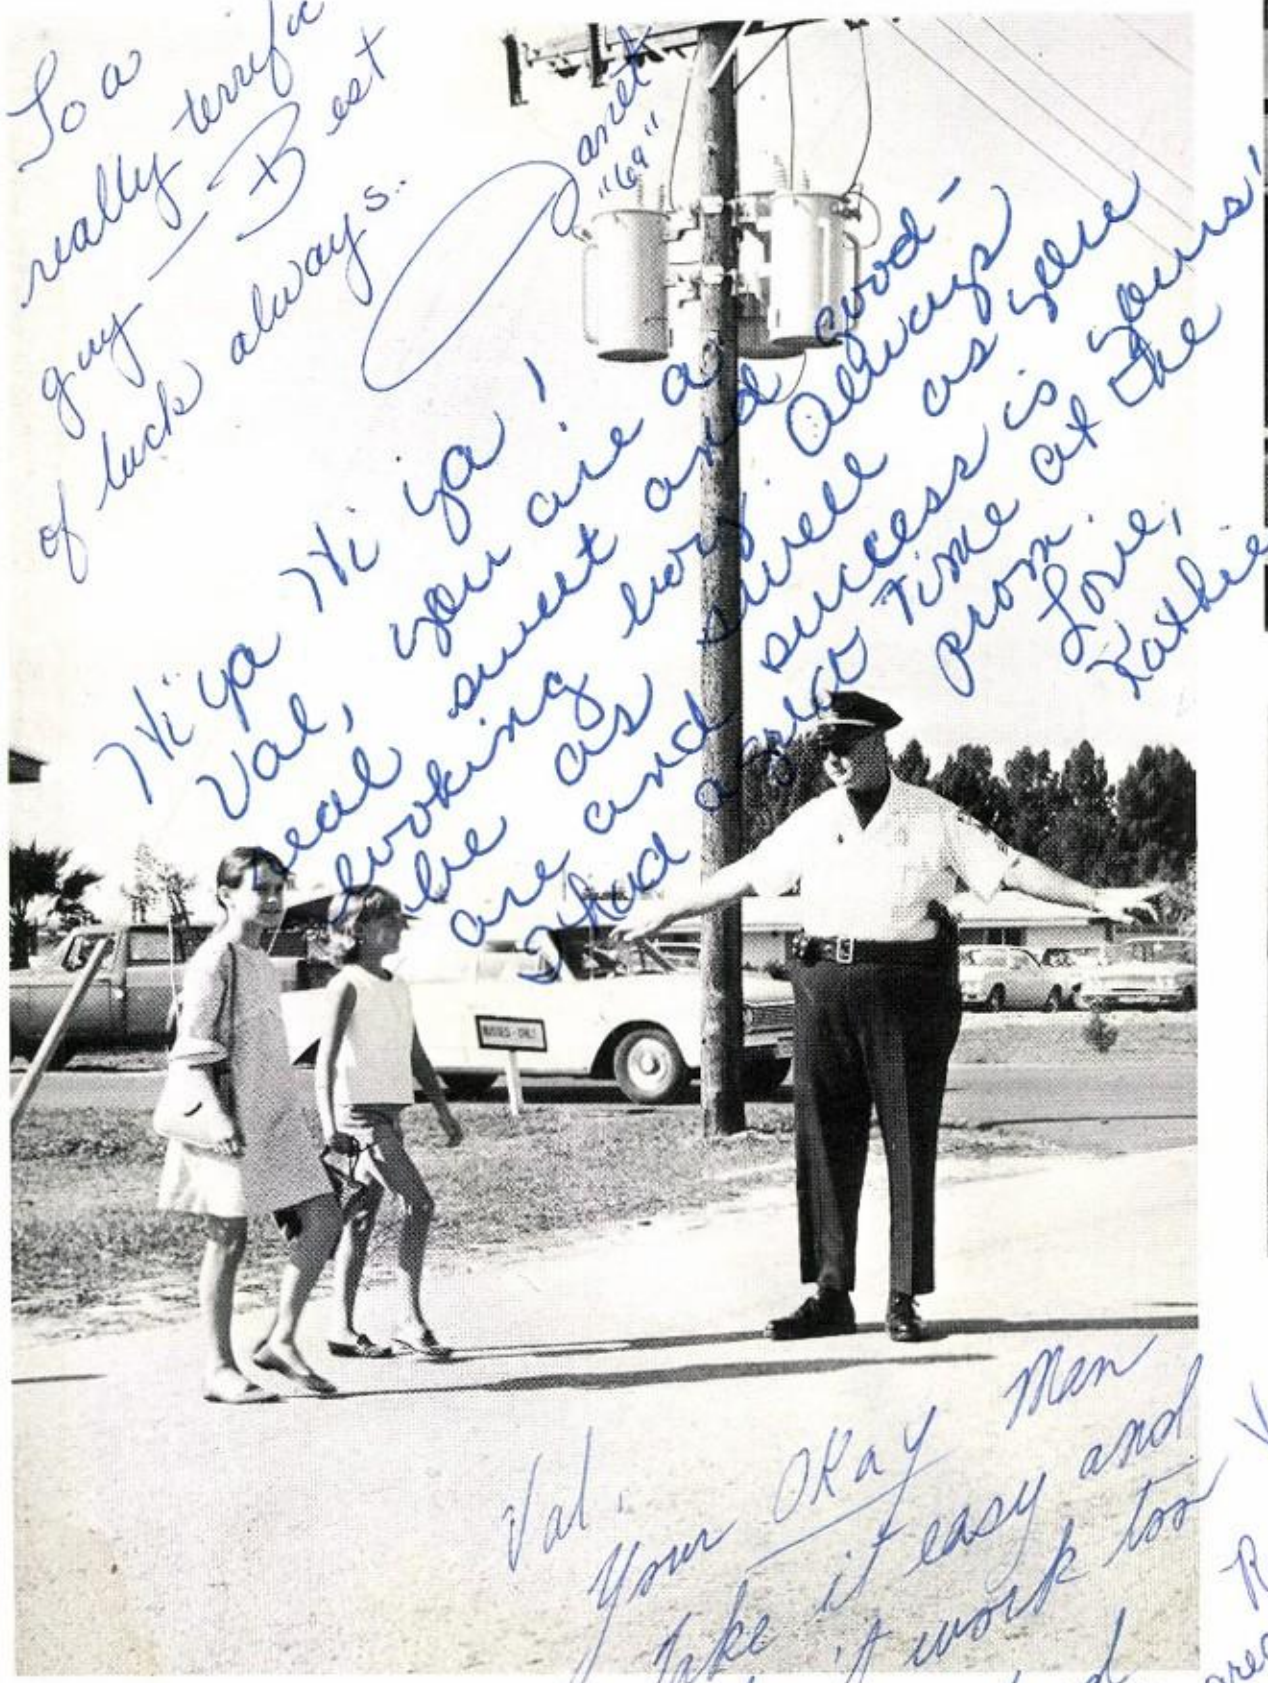 To a
really terrific
guy — Best
of luck always.
Janet
"69"
Hi ya Hi ya!
Val, you are a
real sweet and good-
looking boy. Always
be as swell as you
are and success is yours!
I had a great time at the
prom.
Love,
Kathie
BUSSES - ONLY
Val,
Your OKay Man
take it easy and
work too